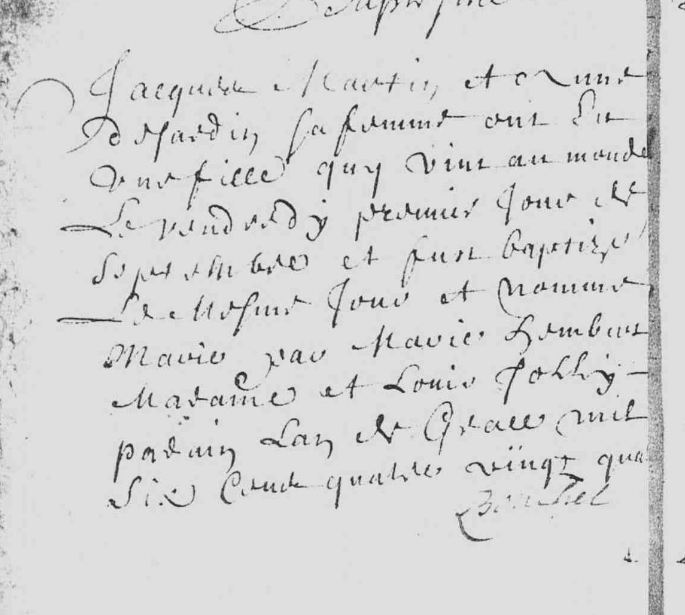 Jacques Martin et Anne
desjardin sa femme ont Eu
une fille quy vint au monde
Le vendredy premier Jour de
Septembre et fust baptizé
Le Mesme Jour et nommé
Marie par Marie
Madame et Louis Jolly
parain Lan de Grace mil
Six Cents quatre vïngt qua